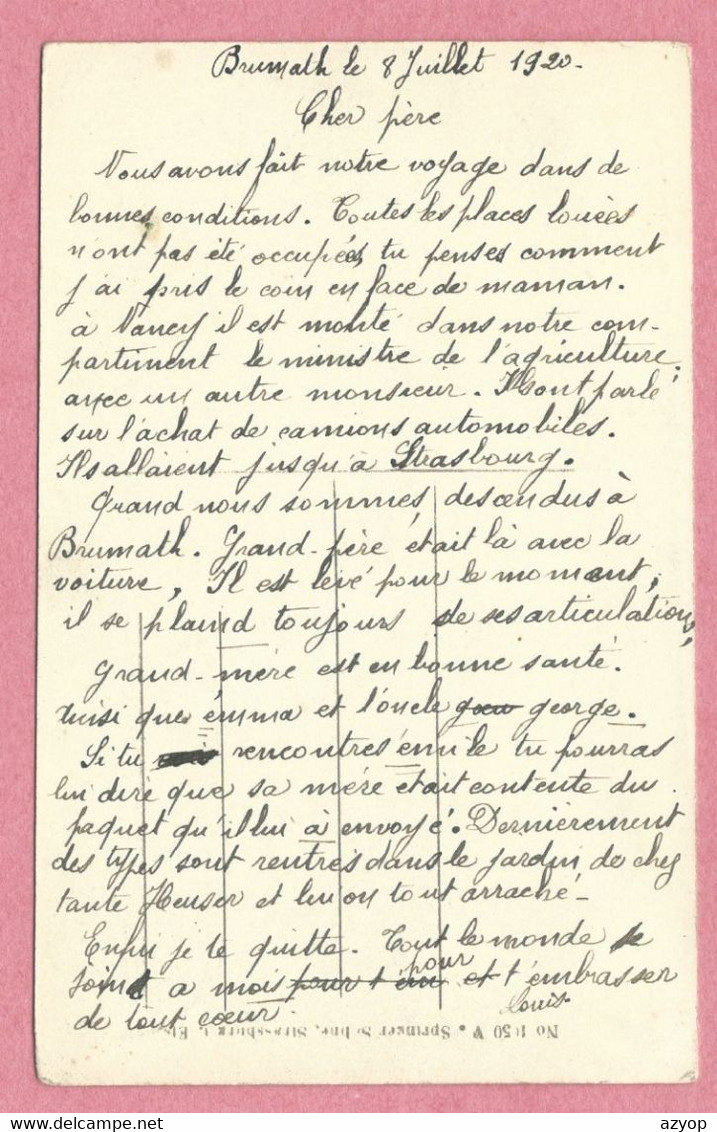 Brumath le 8 Juillet 1920-
Cher père
Nous avons fait notre voyage dans de
bonnes conditions. Toutes les places louées
n'ont pas été occupées, tu penses comment
j'ai pris le coin en face de maman.
à Nancy il est monté dans notre com-
partiment le ministre de l'agriculture
avec un autre monsieur. Ils ont parlé
sur l'achat de camions automobiles.
Ils allaient jusqu'à Strasbourg.
Quand nous sommes descendus à
Brumath. Grand-père était là avec la
voiture, Il est levé pour le moment,
il se plaind toujours de ses articulations,
Grand-mère est en bonne santé.
Ainsi que émma et l'oncle george.
Si tu rencontres émile tu pourras
lui dire que sa mére était contente du
paquet qu'il lui à envoyé. Dernièrement
des types sont rentrés dans le jardin de chez
tante Heuser et lui on tout arraché-
Enfin je te quitte. Tout le monde se
joint a mois pour t'embrasser
de tout cœur. Louis.
No 1050 V. Springer Söhne, Strassburg i. Els
delcampe.net
azyop